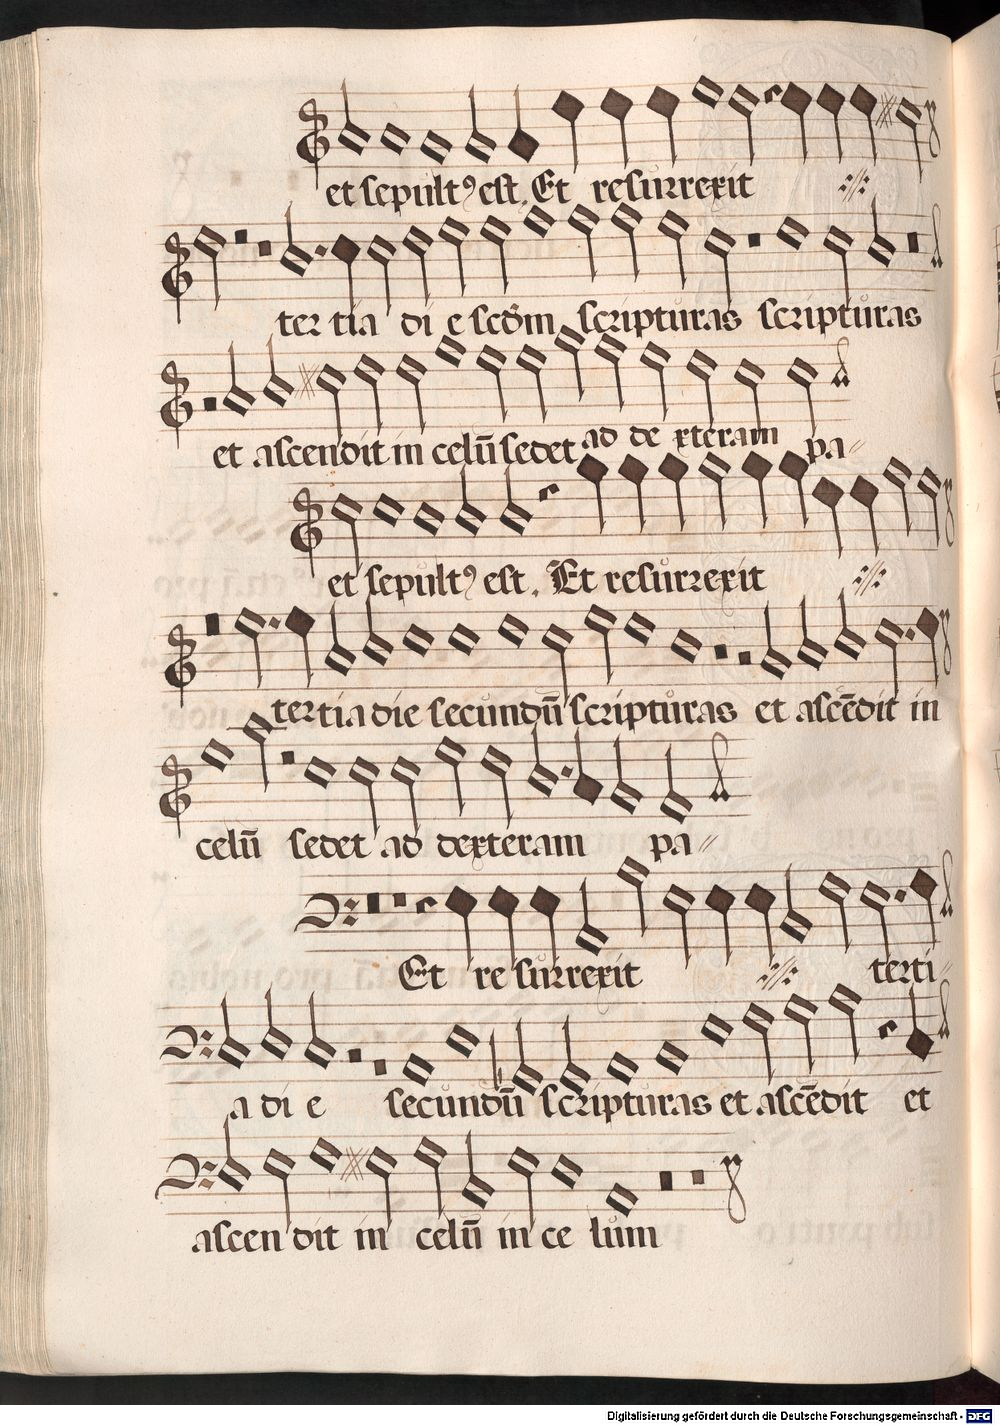 et sepultꝰ est. Et resurrexit ://:
ter tia di e scd̄m scripturas scripturas
et ascendit in celū sedet ad de xteram pa〃
et sepultꝰ est. Et resurrexit ://:
tertia die secundū scripturas et ascēdit in
celū sedet ad dexteram pa〃
Et re surrexit ://: terti〃
a di e secundū scripturas et ascēdit et
ascen dit in celū in ce lum
Digitalisierung gefördert durch die Deutsche Forschungsgemeinschaft - DFG